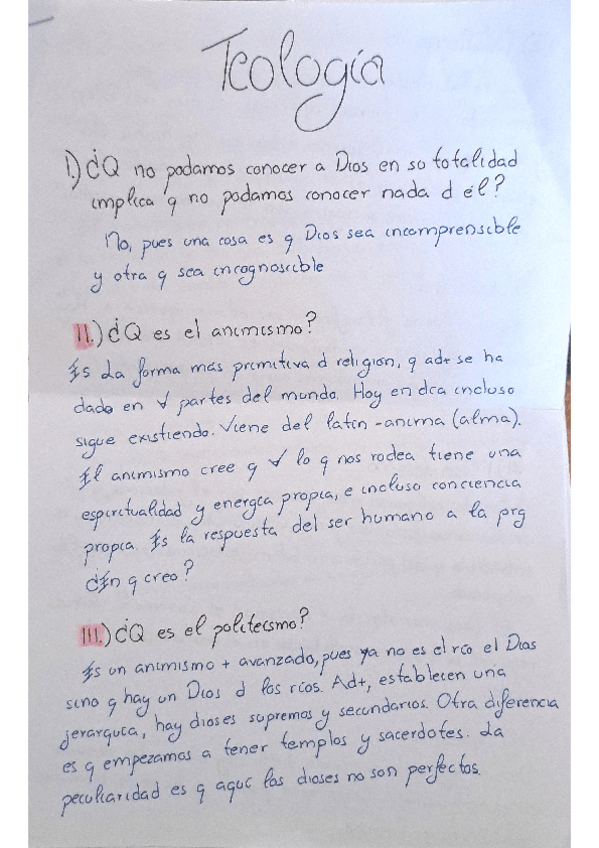 Teología
I.) ¿Q no podamos conocer a Dios en su totalidad
implica q no podamos conocer nada d él?
No, pues una cosa es q Dios sea incomprensible
y otra q sea incognoscible
II.) ¿Q es el animismo?
Es la forma más primitiva d religión, q ad+ se ha
dado en ∀ partes del mundo. Hoy en día incluso
sigue existiendo. Viene del latín -anima (alma).
El animismo cree q ∀ lo q nos rodea tiene una
espiritualidad y energía propia, e incluso conciencia
propia. Es la respuesta del ser humano a la prg
¿En q creo?
III.) ¿Q es el politeísmo?
Es un animismo + avanzado, pues ya no es el río el Dios
sino q hay un Dios d los ríos. Ad+, establecen una
jerarquía, hay dioses supremos y secundarios. Otra diferencia
es q empezamos a tener templos y sacerdotes. La
peculiaridad es q aquí los dioses no son perfectos.